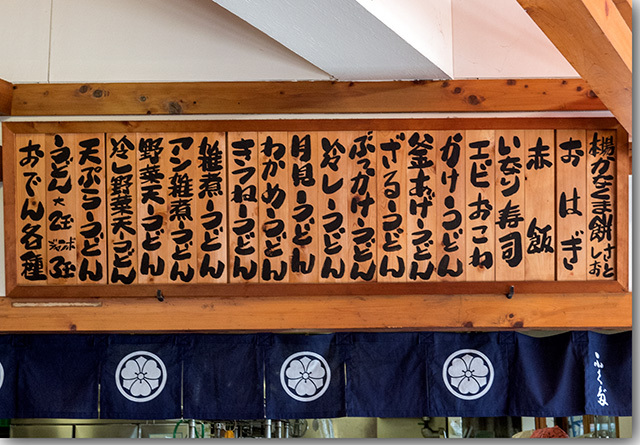 おはぎ
赤飯
いなり寿司
エビおこわ
かけうどん
釜あげうどん
ざるうどん
ぶっかけうどん
冷しうどん
月見うどん
わかめうどん
きつねうどん
雑煮うどん
アン雑煮うどん
野菜天うどん
冷し野菜天うどん
天ぷらうどん
うどん大2玉
ジャンボ3玉
おでん各種